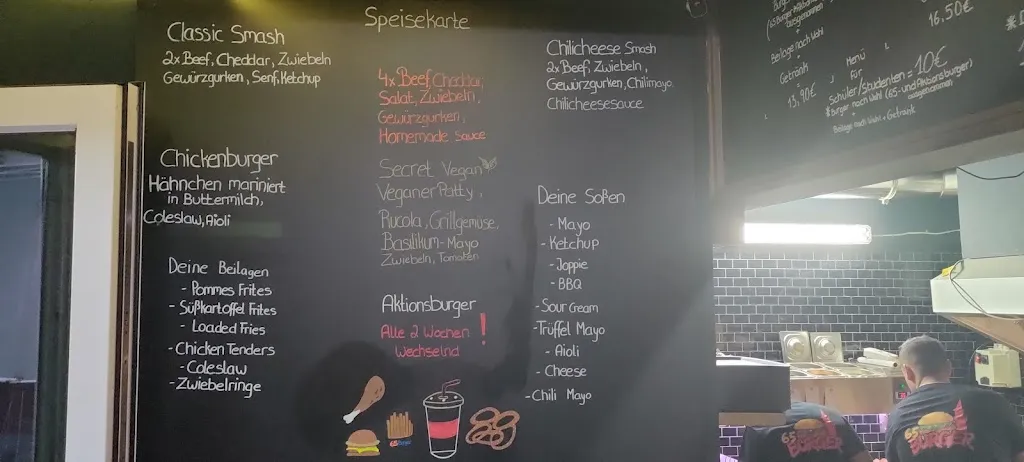 Speisekarte
Classic Smash
2x Beef, Cheddar, Zwiebeln
Gewürzgurken, Senf, Ketchup
Chickenburger
Hähnchen mariniert
in Buttermilch,
Coleslaw, Aioli
Deine Beilagen
- Pommes Frites
- Süßkartoffel Frites
- Loaded Fries
- Chicken Tenders
- Coleslaw
- Zwiebelringe
4x Beef, Cheddar,
Salat, Zwiebeln,
Gewürzgurken,
Homemade Sauce
Secret Vegan
Veganer Patty,
Rucola, Grillgemüse,
Basilikum-Mayo
Zwiebeln, Tomaten
Aktionsburger
Alle 2 Wochen
Wechselnd !
Chilicheese Smash
2x Beef, Zwiebeln,
Gewürzgurken, Chilimayo,
Chilicheesesauce
Deine Soßen
- Mayo
- Ketchup
- Joppie
- BBQ
- Sour Cream
- Trüffel Mayo
- Aioli
- Cheese
- Chili Mayo
ausgenommen)
16,50€
Beilage nach Wahl
Getränk
13,90€
Menü
für
Schüler/Studenten = 10€
*Burger nach Wahl (65- und Aktionsburger)
ausgenommen
Beilage nach Wahl + Getränk
65
BURGER
65
BURGER